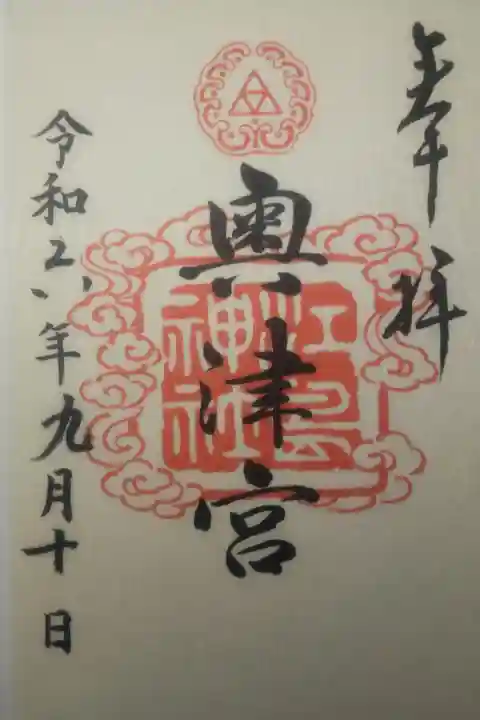 奉拝
奥津宮
江島神社
令和六年九月十日